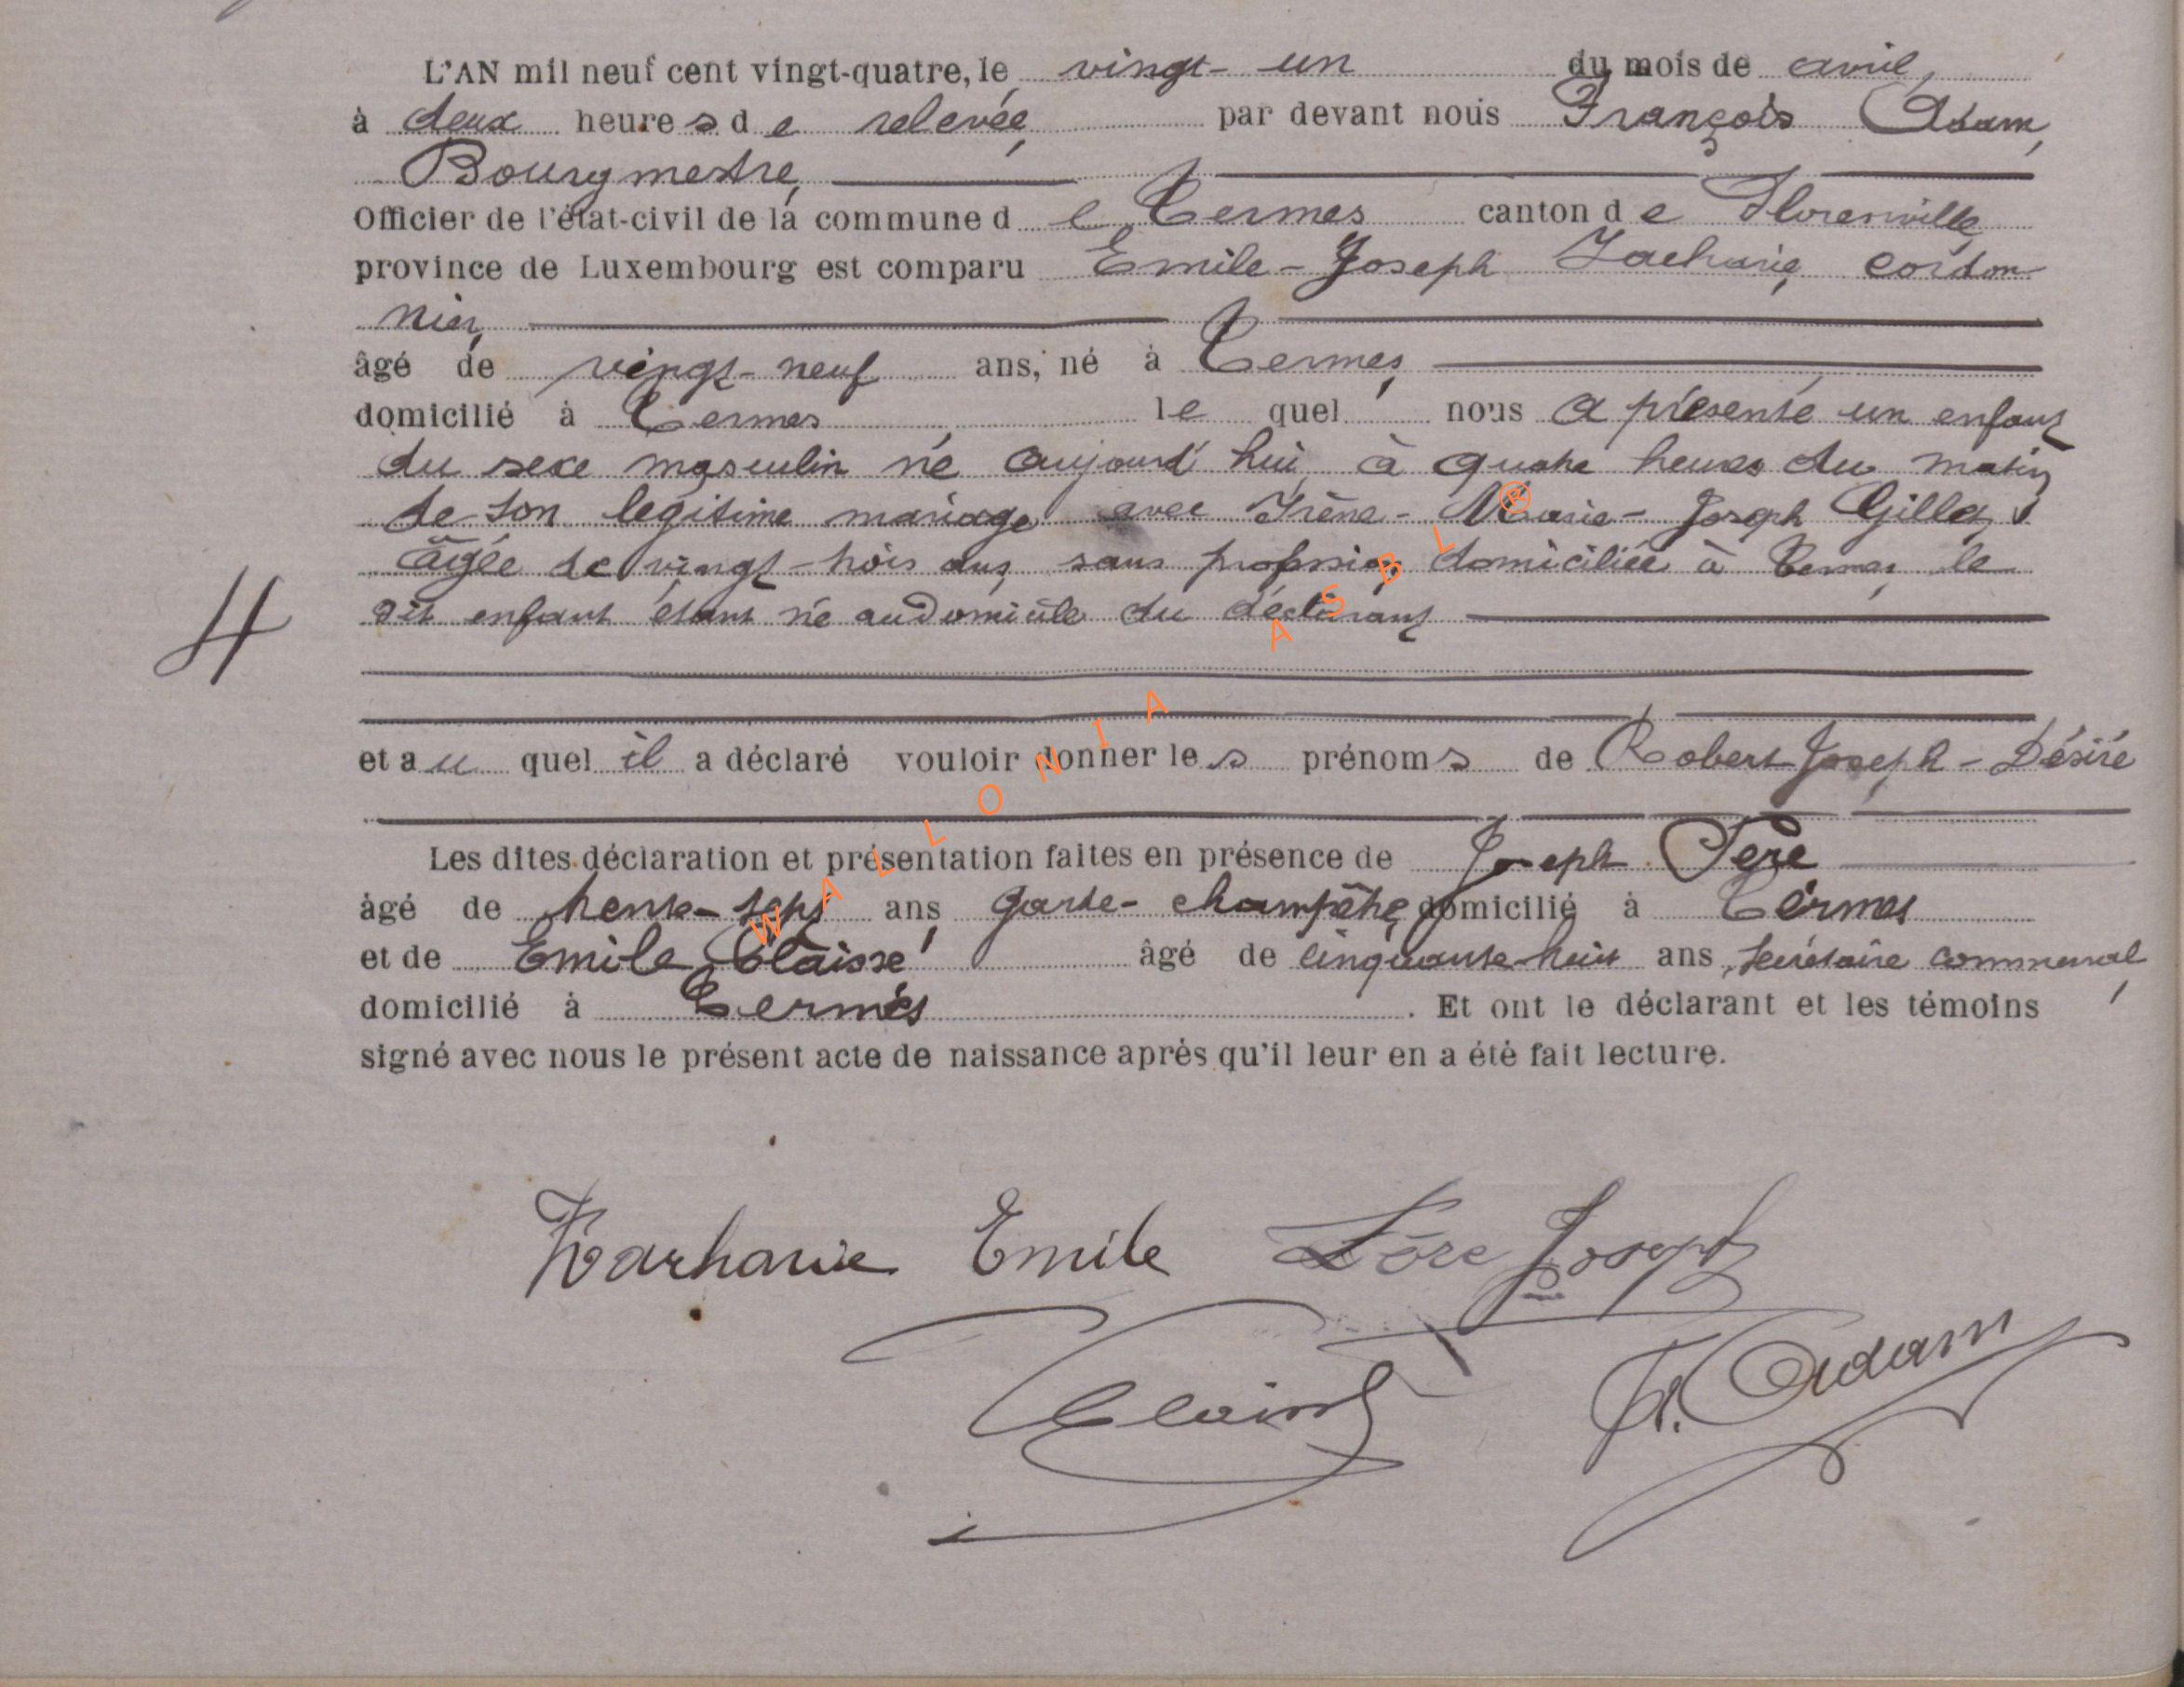 L'AN mil neuf cent vingt-quatre, le vingt-un du mois de avril,
à deux heures de relevée, par devant nous François Adam,
Bourgmestre,
Officier de l'état-civil de la commune de Termes canton de Florenville,
province de Luxembourg est comparu Emile-Joseph Zacharie, cordon
nier,
âgé de vingt-neuf ans, né à Termes,
domicilié à Termes, lequel nous a présenté un enfant
du sexe masculin né aujourd'hui, à quatre heures du matin
de son légitime mariage avec Irène-Marie-Joseph Gilles,
âgée de vingt-trois ans, sans profession domiciliée à Termes, le
dit enfant étant né au domicile du déclarant
4
et auquel il a déclaré vouloir donner les prénoms de Robert Joseph-Désiré
Les dites déclaration et présentation faites en présence de Joseph
âgé de trente-sept ans, garde-champêtre, domicilié à Termes
et de Emile Claisse âgé de cinquante-huit ans, secrétaire communal,
domicilié à Termes. Et ont le déclarant et les témoins
signé avec nous le présent acte de naissance après qu'il leur en a été fait lecture.
Zacharie Emile Joseph
F. Adam
WALLONIA ASBL ®